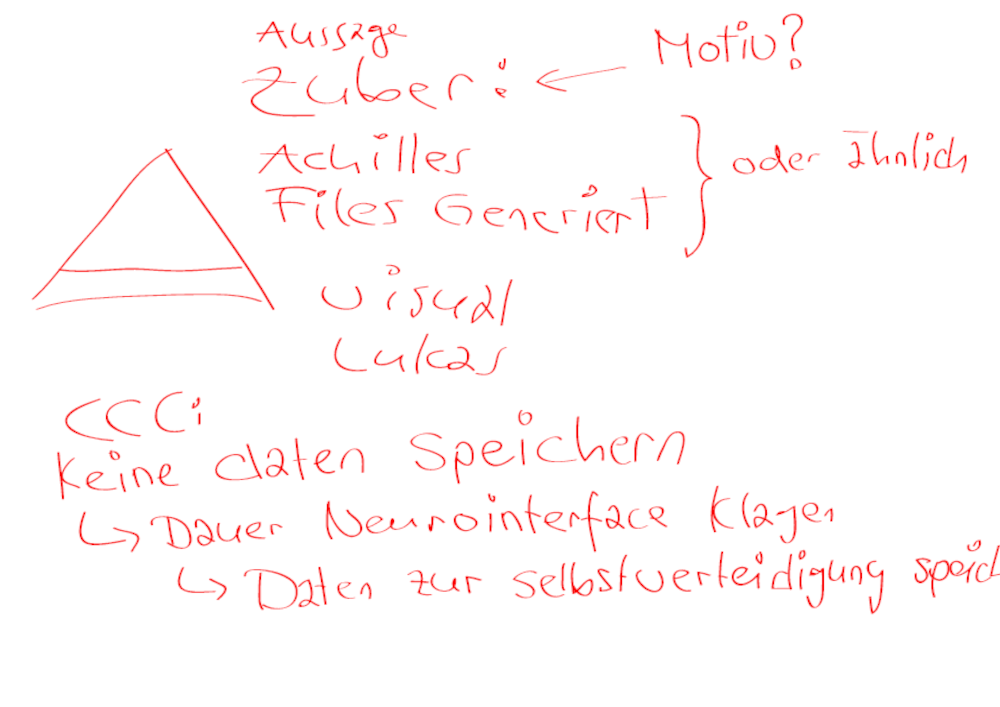 Aussage
Zuber: ← Motiv?
Achilles
Files Generiert } oder ähnlich
visual
Lukas
CCC:
Keine daten speichern
↳ Dauer Neurointerface Klagen
↳ Daten zur selbstverteidigung speich